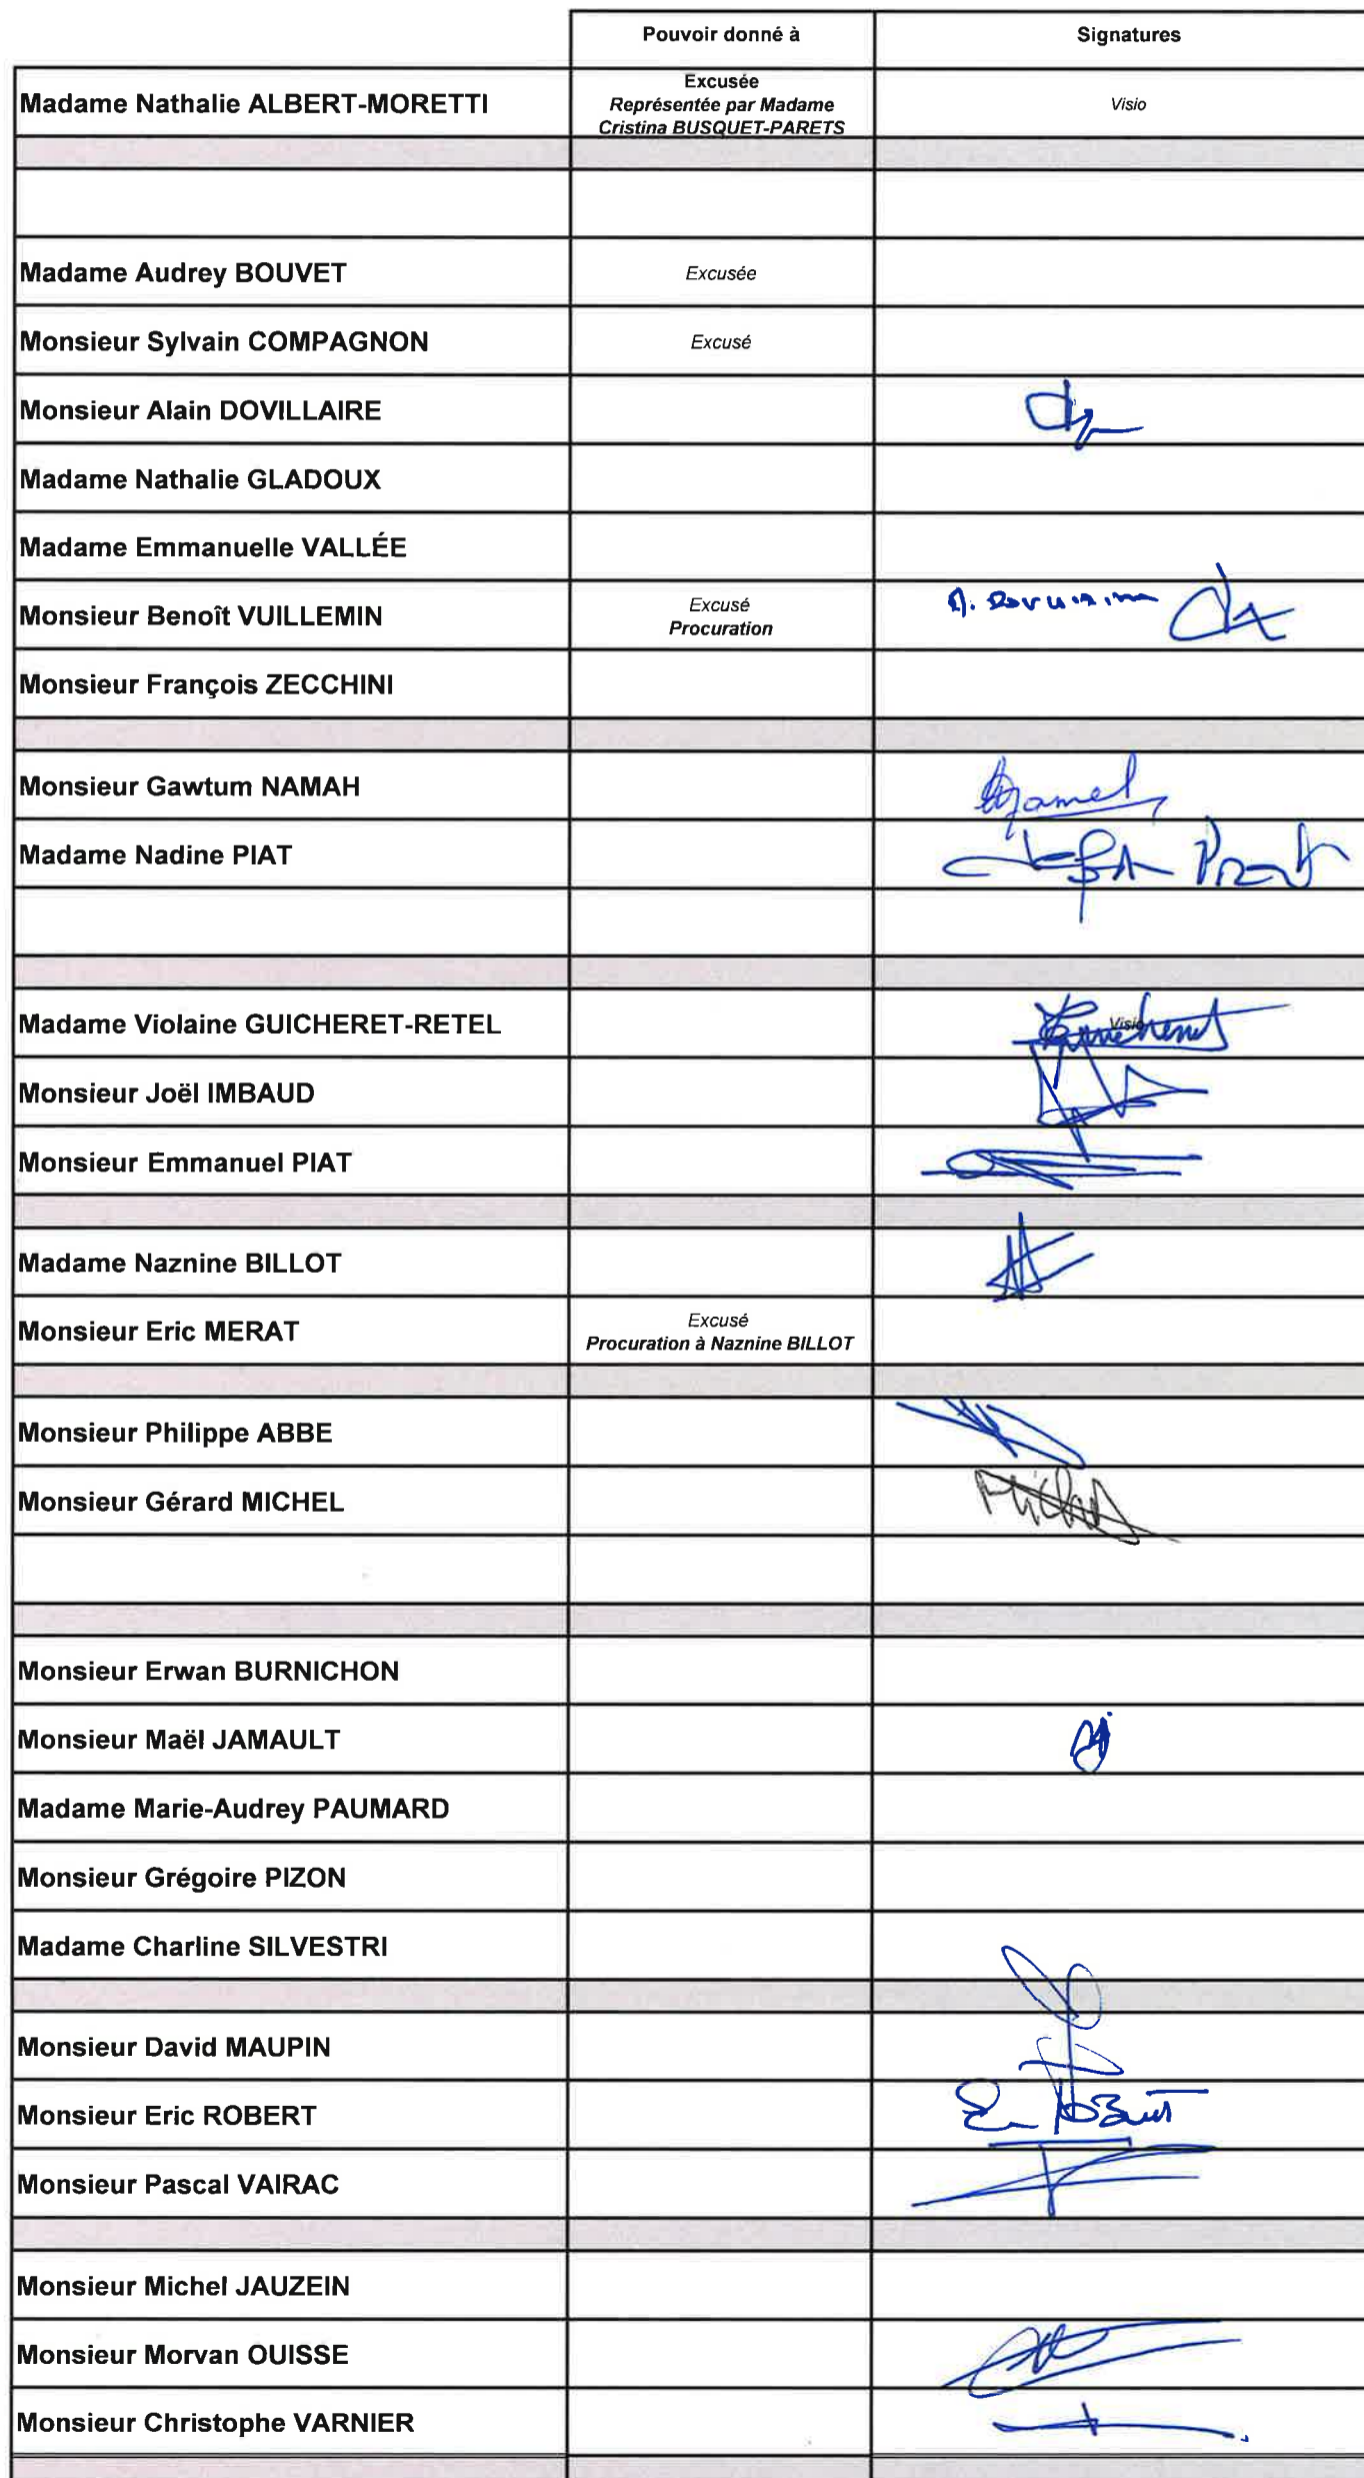 Pouvoir donné à
Signatures
Madame Nathalie ALBERT-MORETTI
Excusée
Représentée par Madame
Cristina BUSQUET-PARETS
Visio
Madame Audrey BOUVET
Excusée
Monsieur Sylvain COMPAGNON
Excusé
Monsieur Alain DOVILLAIRE
Madame Nathalie GLADOUX
Madame Emmanuelle VALLÉE
Monsieur Benoît VUILLEMIN
Excusé
Procuration
Monsieur François ZECCHINI
Monsieur Gawtum NAMAH
Madame Nadine PIAT
Madame Violaine GUICHERET-RETEL
Visio
Monsieur Joël IMBAUD
Monsieur Emmanuel PIAT
Madame Naznine BILLOT
Monsieur Eric MERAT
Excusé
Procuration à Naznine BILLOT
Monsieur Philippe ABBE
Monsieur Gérard MICHEL
Monsieur Erwan BURNICHON
Monsieur Maël JAMAULT
Madame Marie-Audrey PAUMARD
Monsieur Grégoire PIZON
Madame Charline SILVESTRI
Monsieur David MAUPIN
Monsieur Eric ROBERT
Monsieur Pascal VAIRAC
Monsieur Michel JAUZEIN
Monsieur Morvan OUISSE
Monsieur Christophe VARNIER